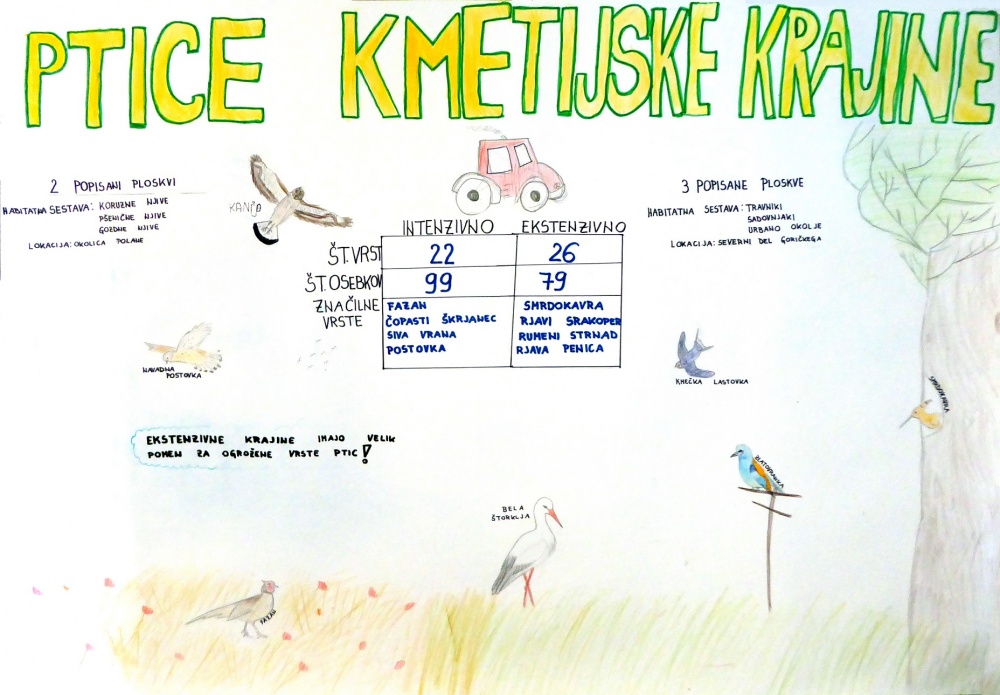 PTICE KMETIJSKE KRAJINE
2 POPISANI PLOSKVI
HABITATNA SESTAVA: KORUZNE NJIVE
PŠENIČNE NJIVE
GOZDNE NJIVE
LOKACIJA: OKOLICA POLANE
KANJA
3 POPISANE PLOSKVE
HABITATNA SESTAVA: TRAVNIKI
SADOVNJAKI
URBANO OKOLJE
LOKACIJA: SEVERNI DEL GORIČKEGA
INTENZIVNO EKSTENZIVNO
ŠT. VRST 22 26
ŠT. OSEBKOV 99 79
ZNAČILNE VRSTE
FAZAN
ČOPASTI ŠKRJANEC
SIVA VRANA
POSTOVKA
SMRDOKAVRA
RJAVI SRAKOPER
RUMENI STRNAD
RJAVA PENICA
NAVADNA
POSTOVKA
KMEČKA LASTOVKA
SMRDOKAVRA
EKSTENZIVNE KRAJINE IMAJO VELIK
POMEN ZA OGROŽENE VRSTE PTIC!
ZLATOVRANKA
BELA
ŠTORKLJA
FAZAN